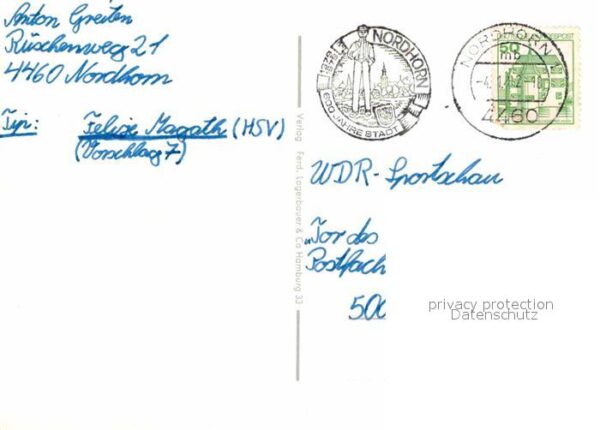 Anton Greiten
Rüschenweg 21
4460 Nordhorn
Tip: Felix Magath (HSV)
(Vorschlag 7)
Verlag Ferd. Lagerbauer & Co Hamburg 33
NORDHORN
600 JAHRE STADT
NORDHORN 1
4460
50
WDR-Sportschau
"Tor des
Postfach
500
privacy protection
Datenschutz